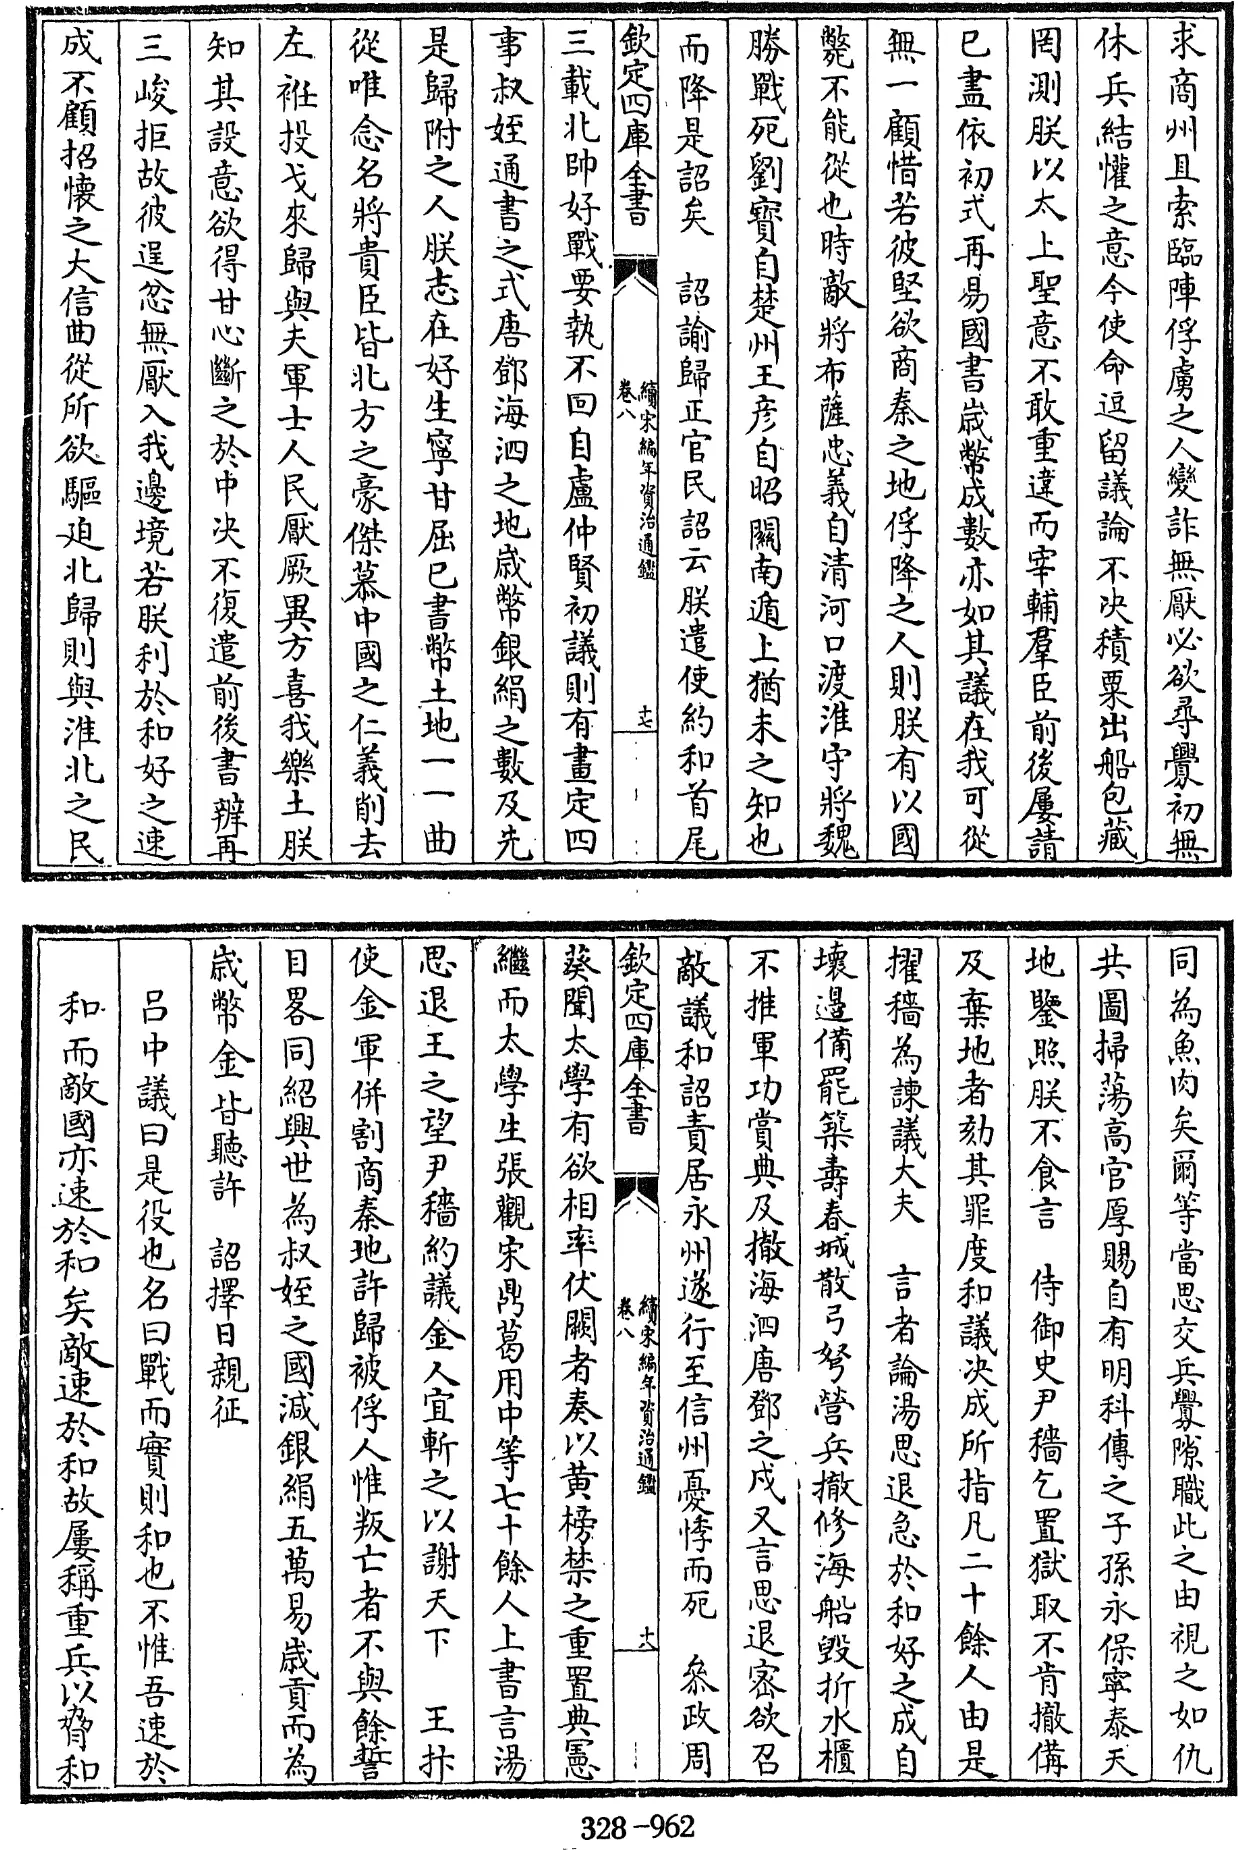 求商州且索臨陣俘虜之人變詐無厭必欲尋釁初無
休兵結懽之意今使命逗留議論不決積粟出船包藏
罔測朕以太上聖意不敢重違而宰輔羣臣前後屢請
已盡依初式再易國書歲幣成數亦如其議在我可從
無一顧惜若彼堅欲商秦之地俘降之人則朕有以國
斃不能從也時敵將布薩忠義自清河口渡淮守將魏
勝戰死劉寶自楚州王彥自昭關南遁上猶未之知也
而降是詔矣　詔諭歸正官民詔云朕遣使約和首尾
欽定四庫全書
續宋編年資治通鑑
卷八
十七
三載北帥好戰要執不回自盧仲賢初議則有畫定四
事叔姪通書之式唐鄧海泗之地歲幣銀絹之數及先
是歸附之人朕志在好生寧甘屈已書幣土地一一曲
從唯念名將貴臣皆北方之豪傑慕中國之仁義削去
左袵投戈來歸與夫軍士人民厭厥異方喜我樂土朕
知其設意欲得甘心斷之於中決不復遣前後書辨再
三峻拒故彼逞忿無厭入我邊境若朕利於和好之速
成不顧招懷之大信曲從所欲驅迫北歸則與淮北之民
同為魚肉矣爾等當思交兵釁隙職此之由視之如仇
共圖掃蕩高官厚賜自有明科傳之子孫永保寧泰天
地鑒照朕不食言　侍御史尹穡乞置獄取不肯撤備
及棄地者劾其罪度和議決成所指凡二十餘人由是
擢穡為諫議大夫　言者論湯思退急於和好之成自
壞邊備罷築壽春城散弓弩營兵撤修海船毀折水櫃
不推軍功賞典及撤海泗唐鄧之戍又言思退密欲召
敵議和詔責居永州遂行至信州憂悸而死　叅政周
欽定四庫全書
續宋編年資治通鑑
卷八
十八
葵聞太學有欲相率伏闕者奏以黃榜禁之重置典憲
繼而太學生張觀宋鼎葛用中等七十餘人上書言湯
思退王之望尹穡約議金人宜斬之以謝天下　王抃
使金軍併割商秦地許歸被俘人惟叛亡者不與餘誓
目畧同紹興世為叔姪之國減銀絹五萬易歲貢而為
歲幣金皆聽許　詔擇日親征
吕中議曰是役也名曰戰而實則和也不惟吾速於
和而敵國亦速於和矣敵速於和故屢稱重兵以脅和
328-962